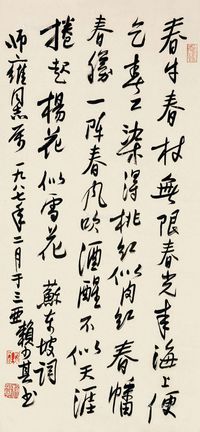 春牛春杖無限春光来海上便
乞春工染得桃红似肉红春幡
春勝一阵春风吹酒醒不似天涯
捲起楊花似雪花 蘇东坡詞
师雍同志属 一九八七年二月于三亜 賴少其书